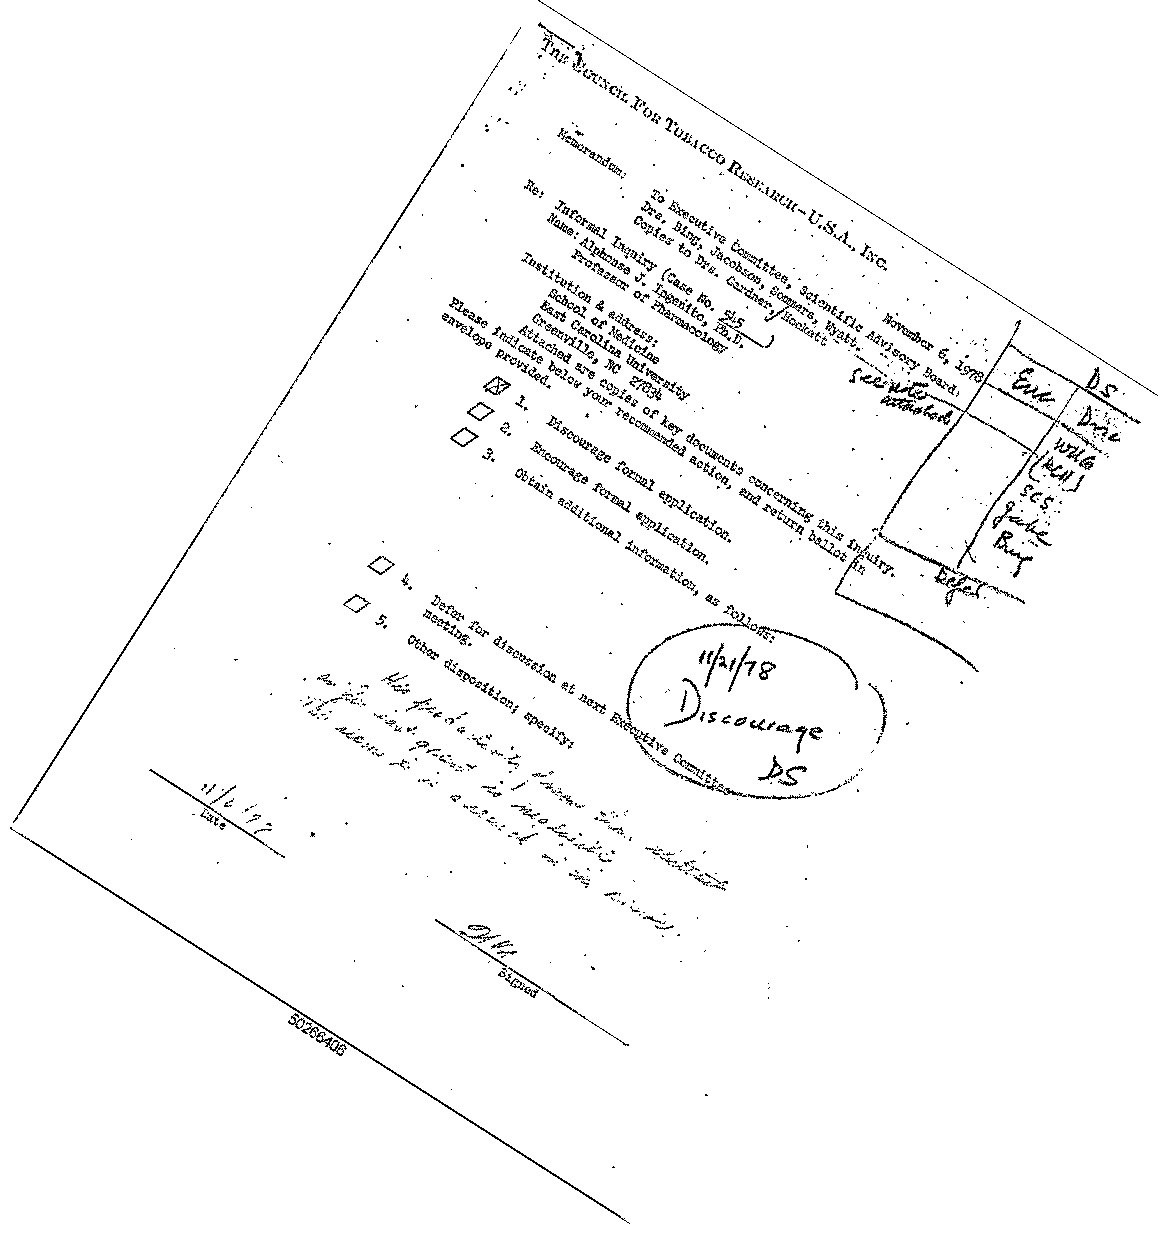 THE COUNCIL FOR TOBACCO RESEARCH-U.S.A., INC.
November 6, 1978
Memorandum:
To Executive Committee, Scientific Advisory Board:
Drs. Bing, Jacobson, Sommers, Wyatt.
Copies to Drs. Gardner, Hockett
see notes
attached
Re: Informal Inquiry (Case No. 545
Name: Alphonse J. Ingenito, Ph.D.
Professor of Pharmacology
Institution & address:
School of Medicine
East Carolina University
Greenville, NC 27834
Attached are copies of key documents concerning this inquiry.
Please indicate below your recommended action, and return ballot in
envelope provided.
1. Discourage formal application.
2. Encourage formal application.
3. Obtain additional information, as follows:
4. Defer for discussion at next Executive Committee
meeting.
5. Other disposition; specify:
Enc DS
Disc
WUG
(RCH)
SCS
Jake
Bing
Defer
11/21/78
Discourage
DS
Date
Signed
50266406